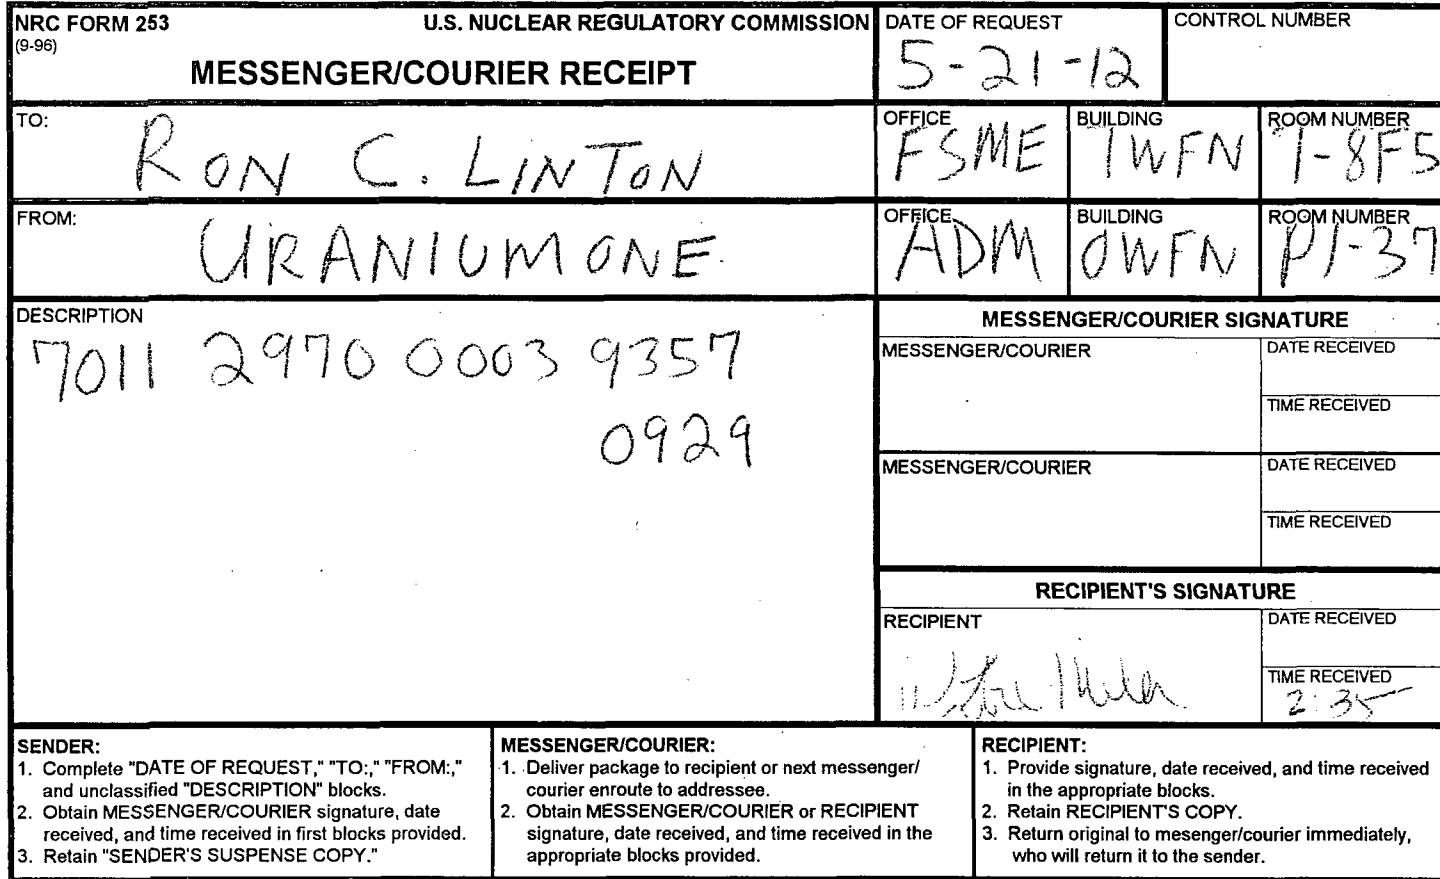 NRC FORM 253
(9-96)
U.S. NUCLEAR REGULATORY COMMISSION
MESSENGER/COURIER RECEIPT
DATE OF REQUEST
5-21-12
CONTROL NUMBER
TO:
RON C. LINTON
OFFICE
FSME
BUILDING
TWFN
ROOM NUMBER
T-8F5
FROM:
URANIUM ONE
OFFICE
ADM
BUILDING
OWFN
ROOM NUMBER
P1-37
DESCRIPTION
7011 2970 0003 9357
0929
MESSENGER/COURIER SIGNATURE
MESSENGER/COURIER
DATE RECEIVED
TIME RECEIVED
MESSENGER/COURIER
DATE RECEIVED
TIME RECEIVED
RECIPIENT'S SIGNATURE
RECIPIENT
DATE RECEIVED
TIME RECEIVED
2:35
SENDER:
1. Complete "DATE OF REQUEST," "TO:," "FROM:,"
and unclassified "DESCRIPTION" blocks.
2. Obtain MESSENGER/COURIER signature, date
received, and time received in first blocks provided.
3. Retain "SENDER'S SUSPENSE COPY."
MESSENGER/COURIER:
1. Deliver package to recipient or next messenger/
courier enroute to addressee.
2. Obtain MESSENGER/COURIER or RECIPIENT
signature, date received, and time received in the
appropriate blocks provided.
RECIPIENT:
1. Provide signature, date received, and time received
in the appropriate blocks.
2. Retain RECIPIENT'S COPY.
3. Return original to mesenger/courier immediately,
who will return it to the sender.